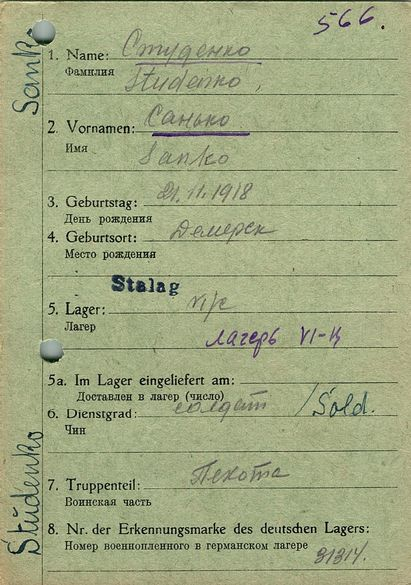 566.
Sanko
1. Name: Студенко
Фамилия Studenko,
2. Vornamen: Санько
Имя Sanko
3. Geburtstag: 21.11.1918
День рождения
4. Geburtsort: Демерск
Место рождения
Stalag
5. Lager: VI/c
Лагерь VI-K
Лагерь
5a. Im Lager eingeliefert am:
Доставлен в лагерь (число)
6. Dienstgrad: солдат /Sold.
Чин
7. Truppenteil: Пехота
Воинская часть
8. Nr. der Erkennungsmarke des deutschen Lagers:
Номер военнопленного в германском лагере 31314.
Studenko